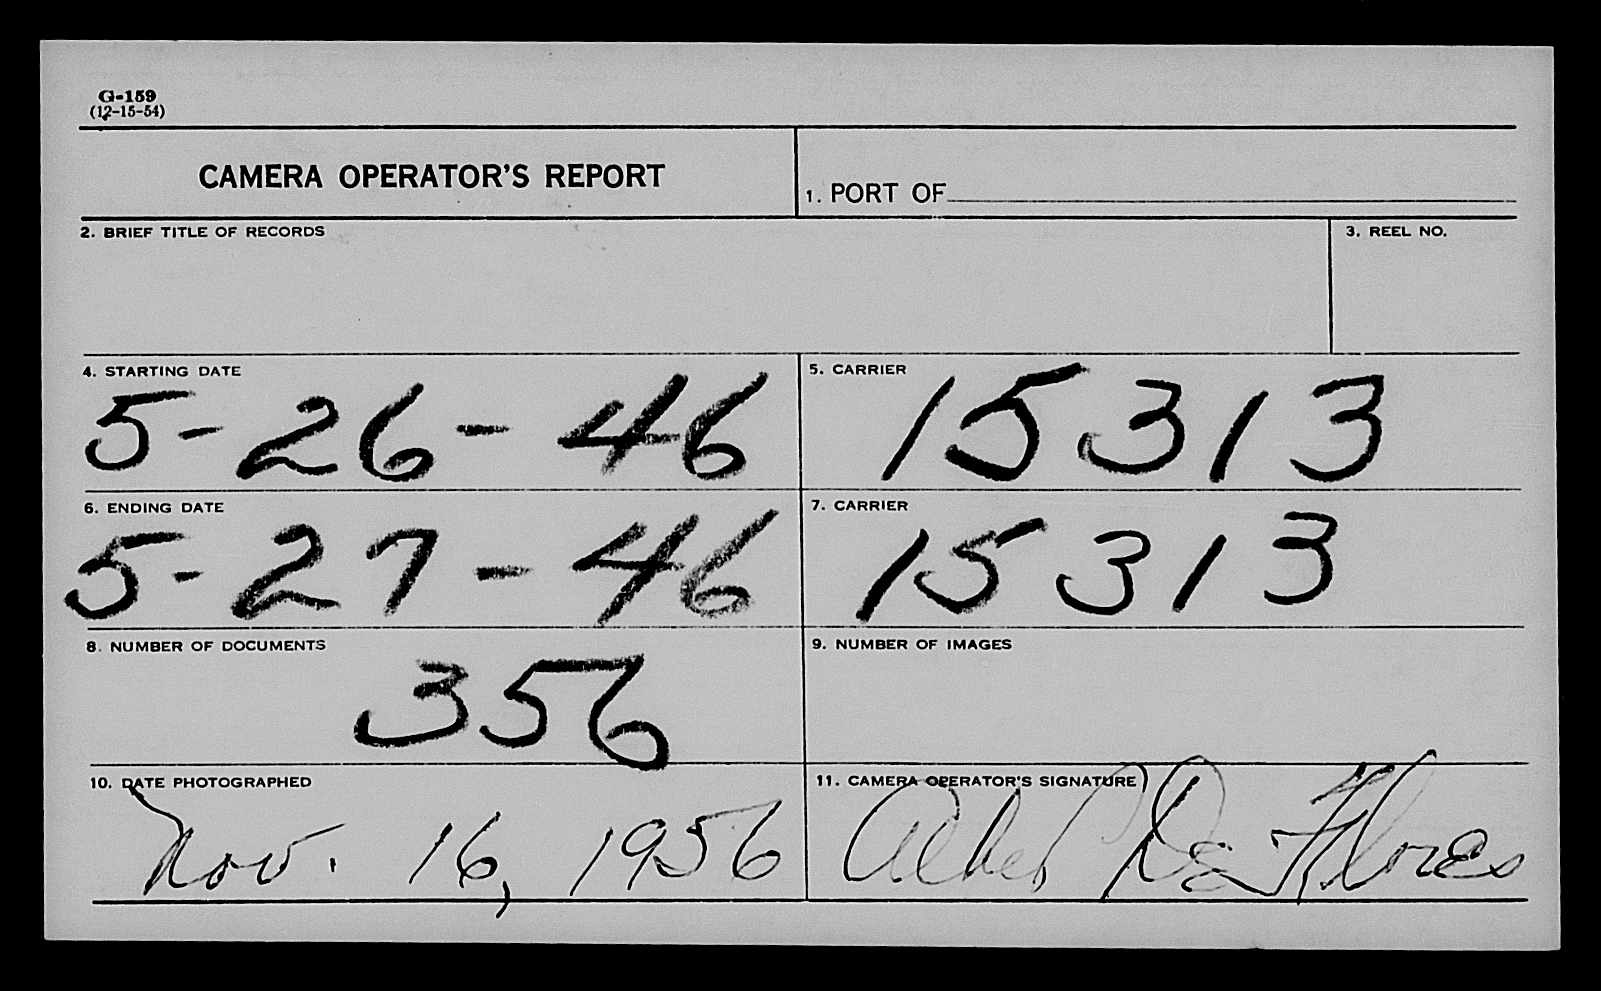 G-159
(12-15-54)
CAMERA OPERATOR'S REPORT
1. PORT OF
2. BRIEF TITLE OF RECORDS
3. REEL NO.
4. STARTING DATE
5-26-46
5. CARRIER
15313
6. ENDING DATE
5-27-46
7. CARRIER
15313
8. NUMBER OF DOCUMENTS
356
9. NUMBER OF IMAGES
10. DATE PHOTOGRAPHED
Nov. 16, 1956
11. CAMERA OPERATOR'S SIGNATURE
De Flores